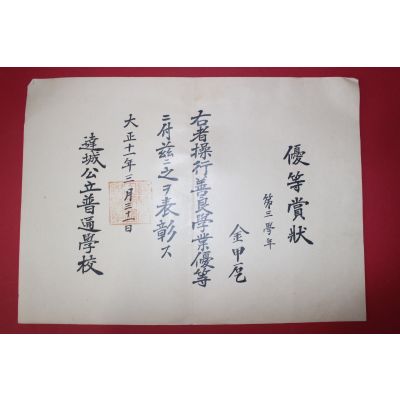 優等賞狀
第三學年
金甲
右者操行善良學業優等
ニ付茲ニ之ヲ表彰ス
大正十一年三月三十一日
達城公立普通學校